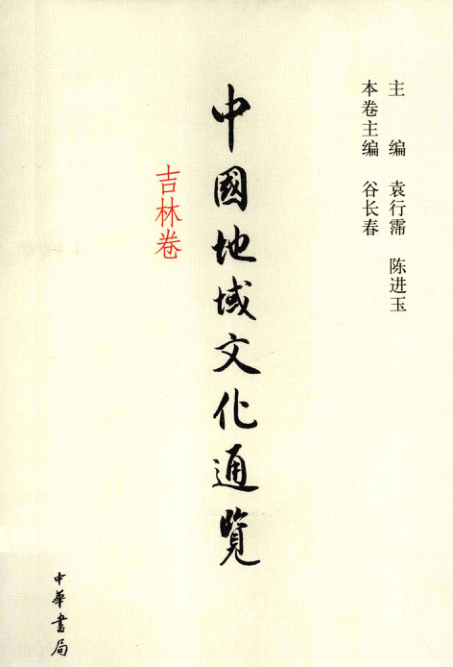 主 编 袁行霈 陈进玉
本卷主编 谷长春
中國地域文化通覽
吉林卷
中華書局